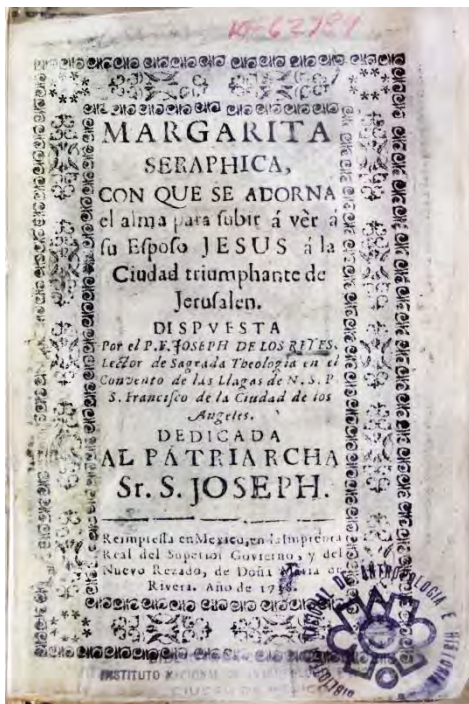 19-62784
MARGARITA
SERAPHICA,
CON QUE SE ADORNA
el alma para subir á vèr á
su Esposo JESUS á la
Ciudad triumphante de
Jerusalen.
DISPVESTA
Por el P.F. JOSEPH DE LOS REYES.
Lector de Sagrada Theologia en el
Convento de las Llagas de N. S. P.
S. Francisco de la Ciudad de los
Angeles.
DEDICADA
AL PATRIARCHA
Sr. S. JOSEPH.
Reimpressa en Mexico, en la Imprenta
Real del Superior Govierno, y del
Nuevo Rezado, de Doña Maria de
Rivera. Año de
NACIONAL DE ANTROPOLOGIA E HISTORIA
INSTITUTO NACIONAL DE